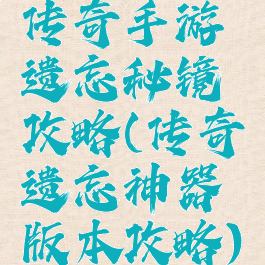 传奇手游
遗忘秘镜
攻略(传奇
遗忘神器
版本攻略)